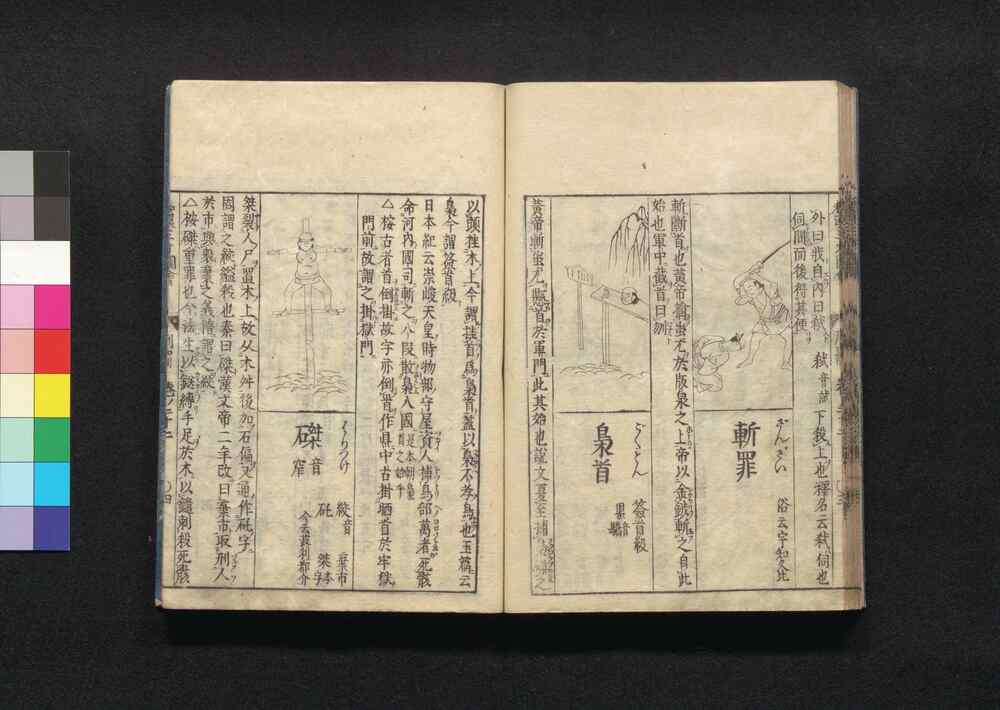 外曰我自內曰弑 弑音試 下我上也釋名云弑伺也
伺間而後得其便
斬罪
ざんざい
俗云宇知久比
斬斷首也黃帝禽蚩尤於版泉之上帝以金鉞斬之自此
始也軍中截首曰
梟首
ごくもん
答首級
黃帝斬蚩尤懸首於軍門此其始也說文夏至捕梟磔之
以頭挂木上今謂挂首爲梟首蓋以梟不孝鳥也玉篇云
梟今謂答首級
日本紀云崇峻天皇時物部守屋資人捕鳥部萬者死骸
命河內國司斬之八段散梟八國是本朝梟首之始乎
△按古者首倒掛故字亦倒首作県中古掛晒首於牢獄
門前故謂之掛獄門
磔
はりつけ
音窄
矺
絞音
棄市
桀本字
桀裂人尸置木上故从木舛後加石偏又通作矺字
周謂之
秦曰磔漢文帝二年改曰棄市取刑人
於市與衆棄之義
△按磔重罪也今法生以
縛手足於木以鑓刺殺死骸